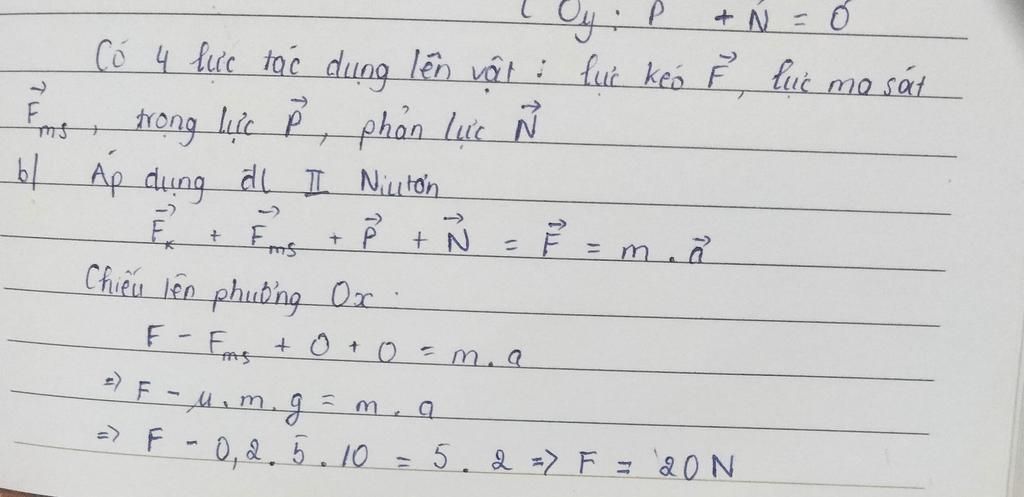 Oy: P + N = 0
Có 4 lực tác dụng lên vật: lực kéo F⃗, lực ma sát
F⃗ms, trọng lực P⃗, phản lực N⃗
b/ Áp dụng dl II Niutơn
F⃗k + F⃗ms + P⃗ + N⃗ = F⃗ = m.a⃗
Chiếu lên phương Ox.
F - Fms + 0 + 0 = m.a
=> F - μ.m.g = m.a
=> F - 0,2.5.10 = 5.2 => F = 20N